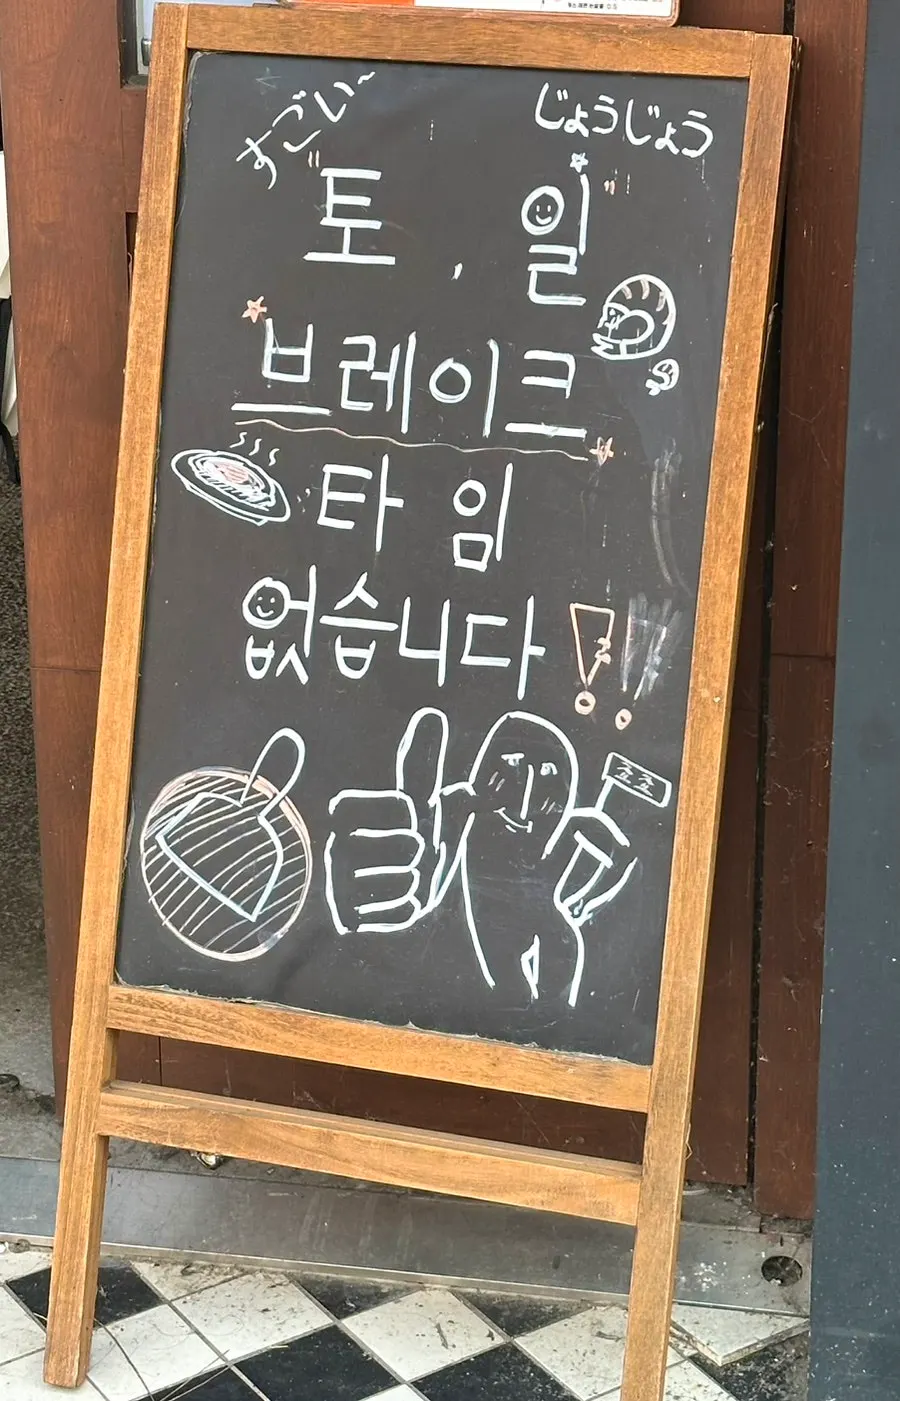 すごい~
じょうじょう
"토, 일"
브레이크
타임
없습니다!!